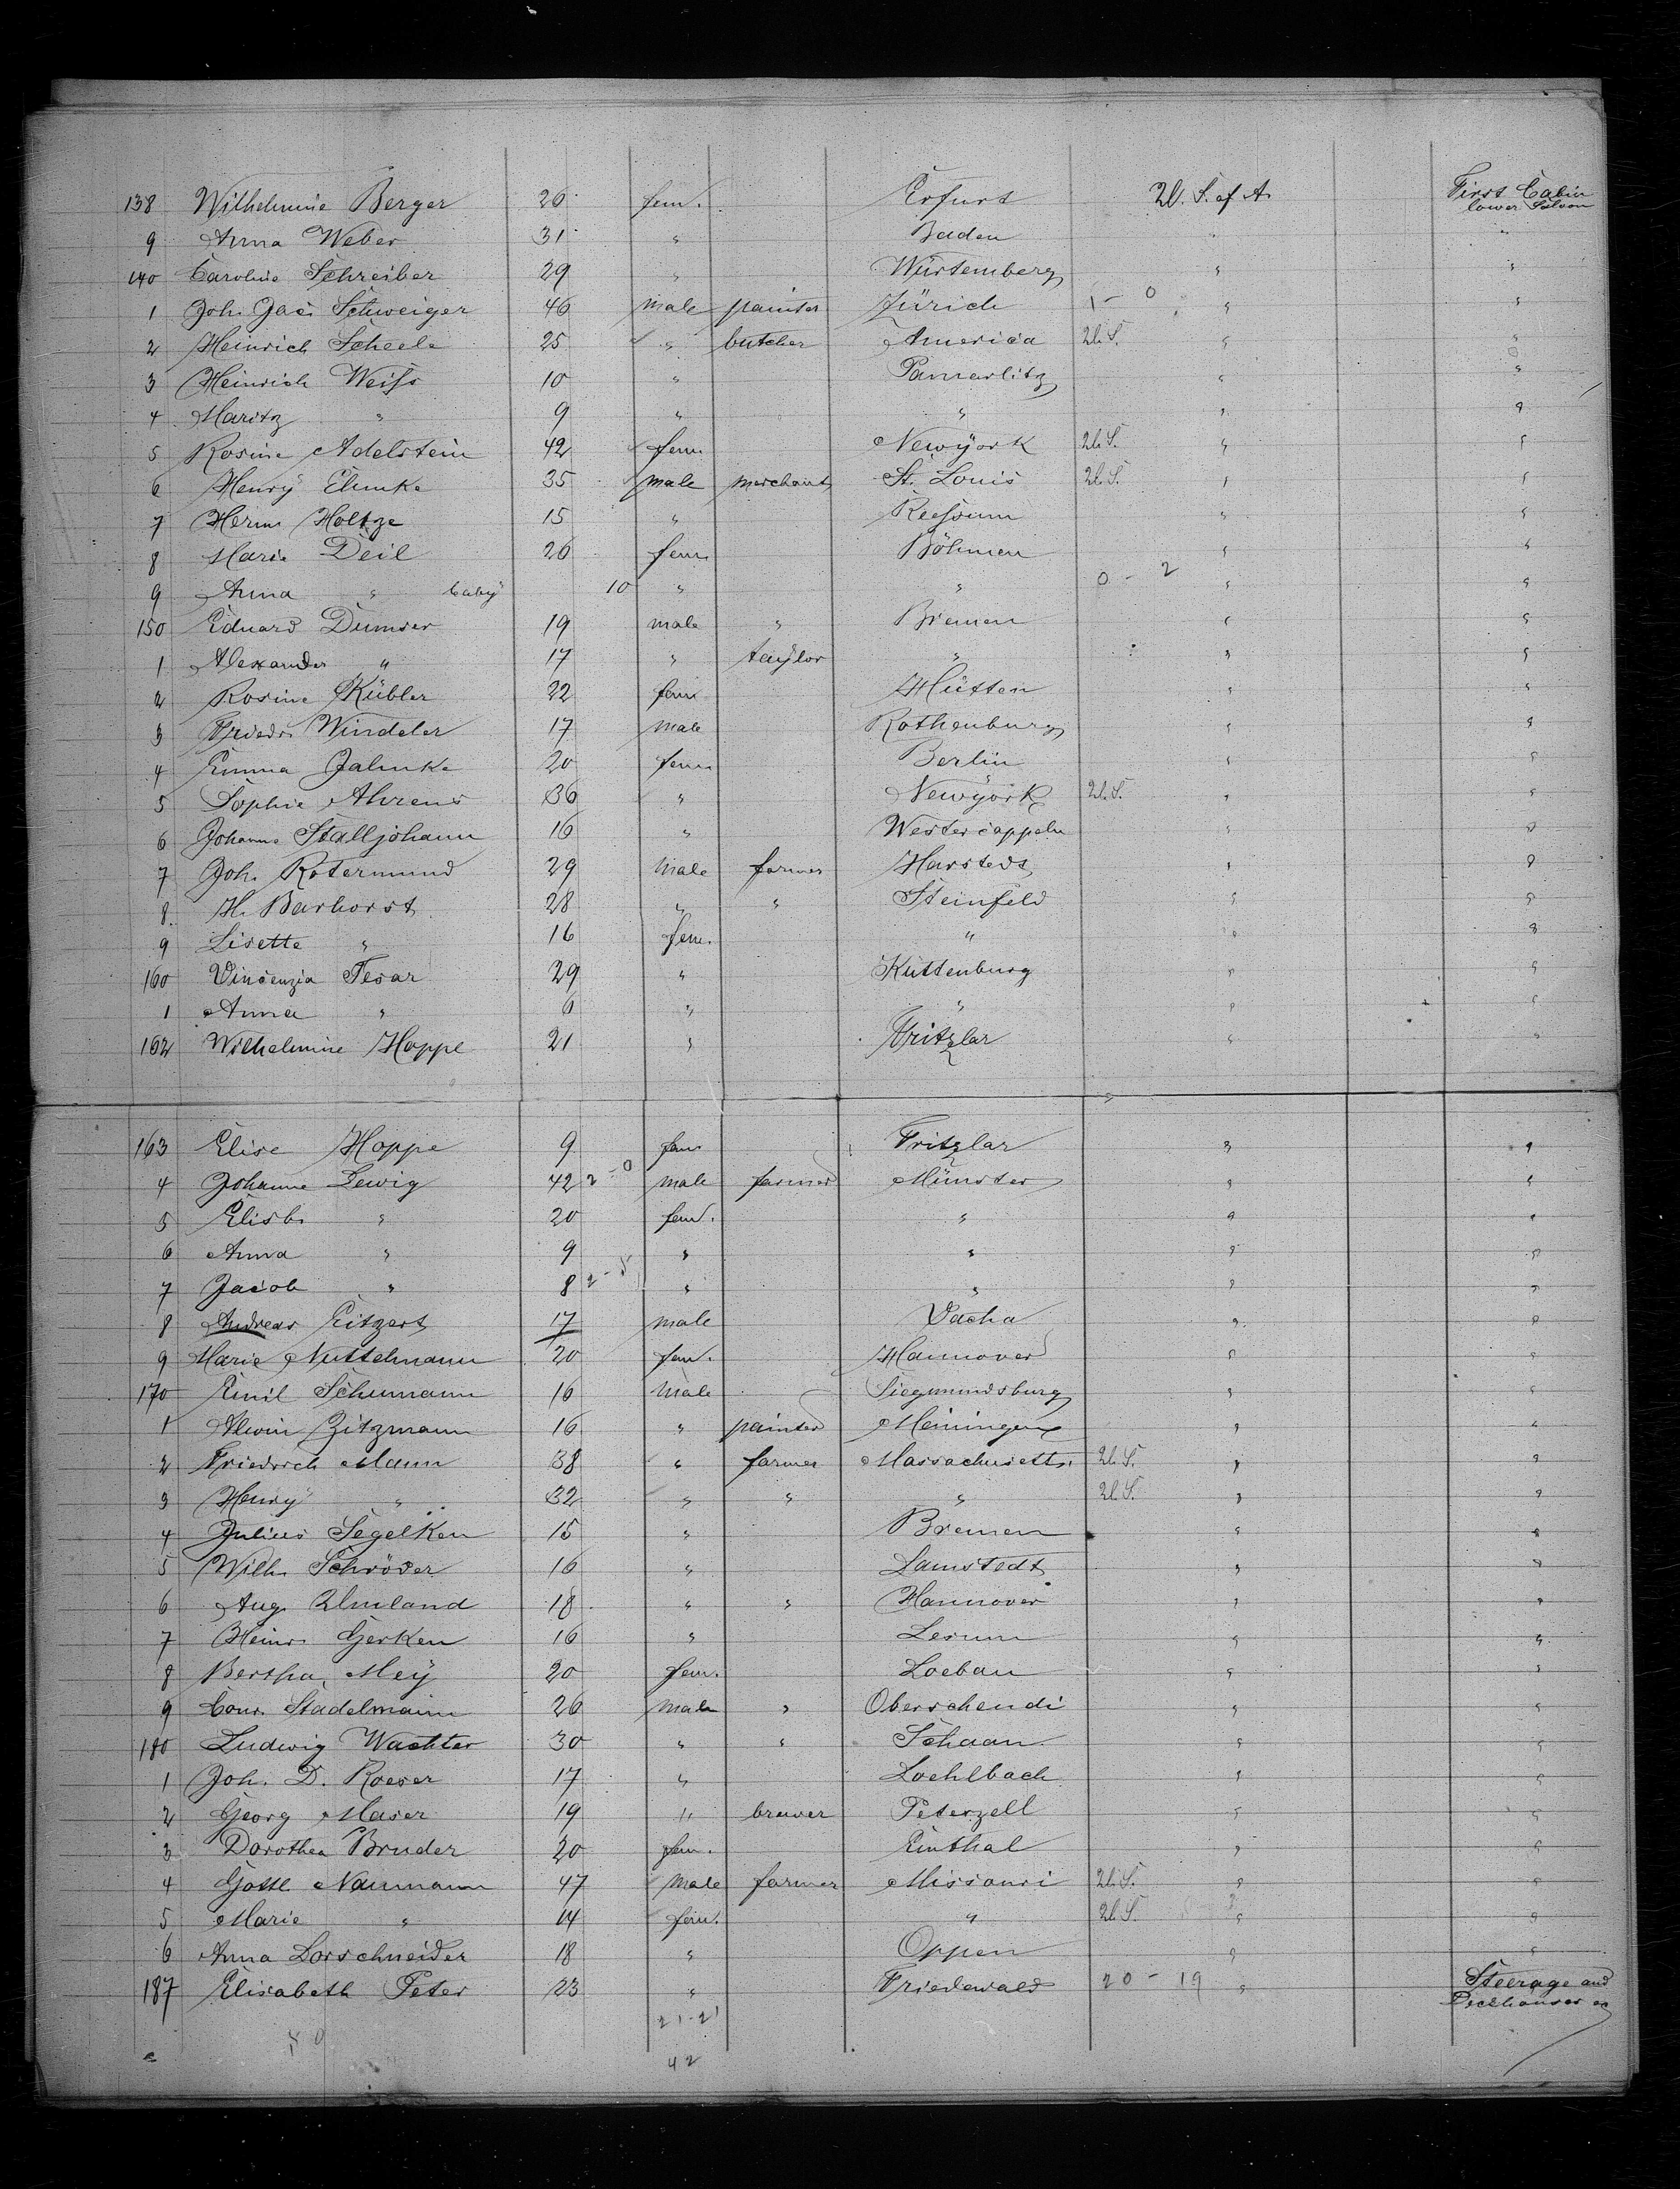 138 Wilhelmine Berger 26 fem. Erfurt U. S. of A. First Cabin lower Saloon
9 Anna Weber 31 " Baden " "
140 Caroline Schreiber 29 " Würtemberg " "
1 Joh. Jac. Schweiger 46 male painter Zürich 1 - 0 " "
2 Heinrich Scheele 25 " butcher America U. S. " "
3 Heinrich Weiss 10 " " "
4 Maritz " 9 " " " "
5 Rosine Adelstein 42 fem Newyork U. S. " "
6 Henry Elmke 35 male merchant St. Louis U. S. " "
7 Herm Holtze 15 " Reessum " "
8 Marie Deil 26 fem Böhmen " "
9 Anna " baby 10 " " 0 - 2 " "
150 Eduard Dumser 19 male " Bremen " "
1 Alexander " 17 " taylor " " "
2 Rosine Kübler 22 fem Hütten " "
3 Friedr. Windeler 17 male Rothenburg " "
4 Emma Jahnke 20 fem Berlin " "
5 Sophie Ahrens 36 " Newyork U. S. " "
6 Johanne Stalljohann 16 " Westercappeln " "
7 Joh. Rotermund 29 male farmer Harstedt " "
8 H. Barhorst 28 " " Steinfeld " "
9 Lisette " 16 fem. " " "
160 Vincenzia Tesar 29 " Kuttenburg " "
1 Anna " 6 " " " "
162 Wilhelmine Hoppe 21 " Fritzlar " "
163 Elise Hoppe 9 fem Fritzlar " "
4 Johanne Lewig 42 2 - 0 male farmer Münster " "
5 Elisb. " 20 fem. " " "
6 Anna " 9 " " " "
7 Jacob " 8 " " " "
8 Andreas Eitzert 17 male Vacha " "
9 Marie Nuttelmann 20 fem. Hannover " "
170 Emil Schumann 16 male Siegmundsburg " "
1 Alwin Zitzmann 16 " painter Meiningen " "
2 Friedrich Mann 38 " farmer Massachusetts U. S. " "
3 Henry " 32 " " " U. S. " "
4 Julius Segelken 15 " Bremen " "
5 Wilh. Schröder 16 " Lamstedt " "
6 Aug. Umland 18 " " Hannover " "
7 Heinr. Gerken 16 " Lesum " "
8 Bertha Mey 20 fem. Loebau " "
9 Conr. Stadelmann 26 male " Oberschendi " "
180 Ludwig Wachter 30 " " Schaan " "
1 Joh. D. Roeser 17 " Loehlbach " "
2 Georg Maser 19 " brewer Peterzell " "
3 Dorothea Bruder 20 fem. Einthal " "
4 Gottl. Naumann 47 male farmer Missouri U. S. " "
5 Marie " 14 fem. " U. S. " "
6 Anna Dorschneider 18 " Oppen " "
187 Elisabeth Peter 23 " Friedewald 20 - 19 " Steerage and Deckhouses
21-21
42